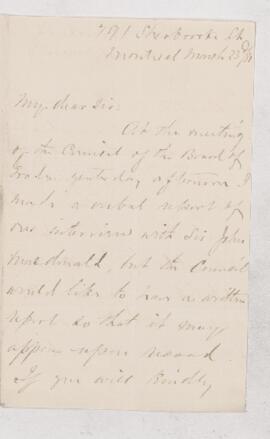 791 Sherbrooke St
Montreal March 23rd
My dear Sir:
At the meeting
of the Council of the Board of
Trade yesterday afternoon I
made a verbal report of
our interview with Sir John
Macdonald, but the Council
would like to have a written
report so that it may
appear upon record.
If you will kindly